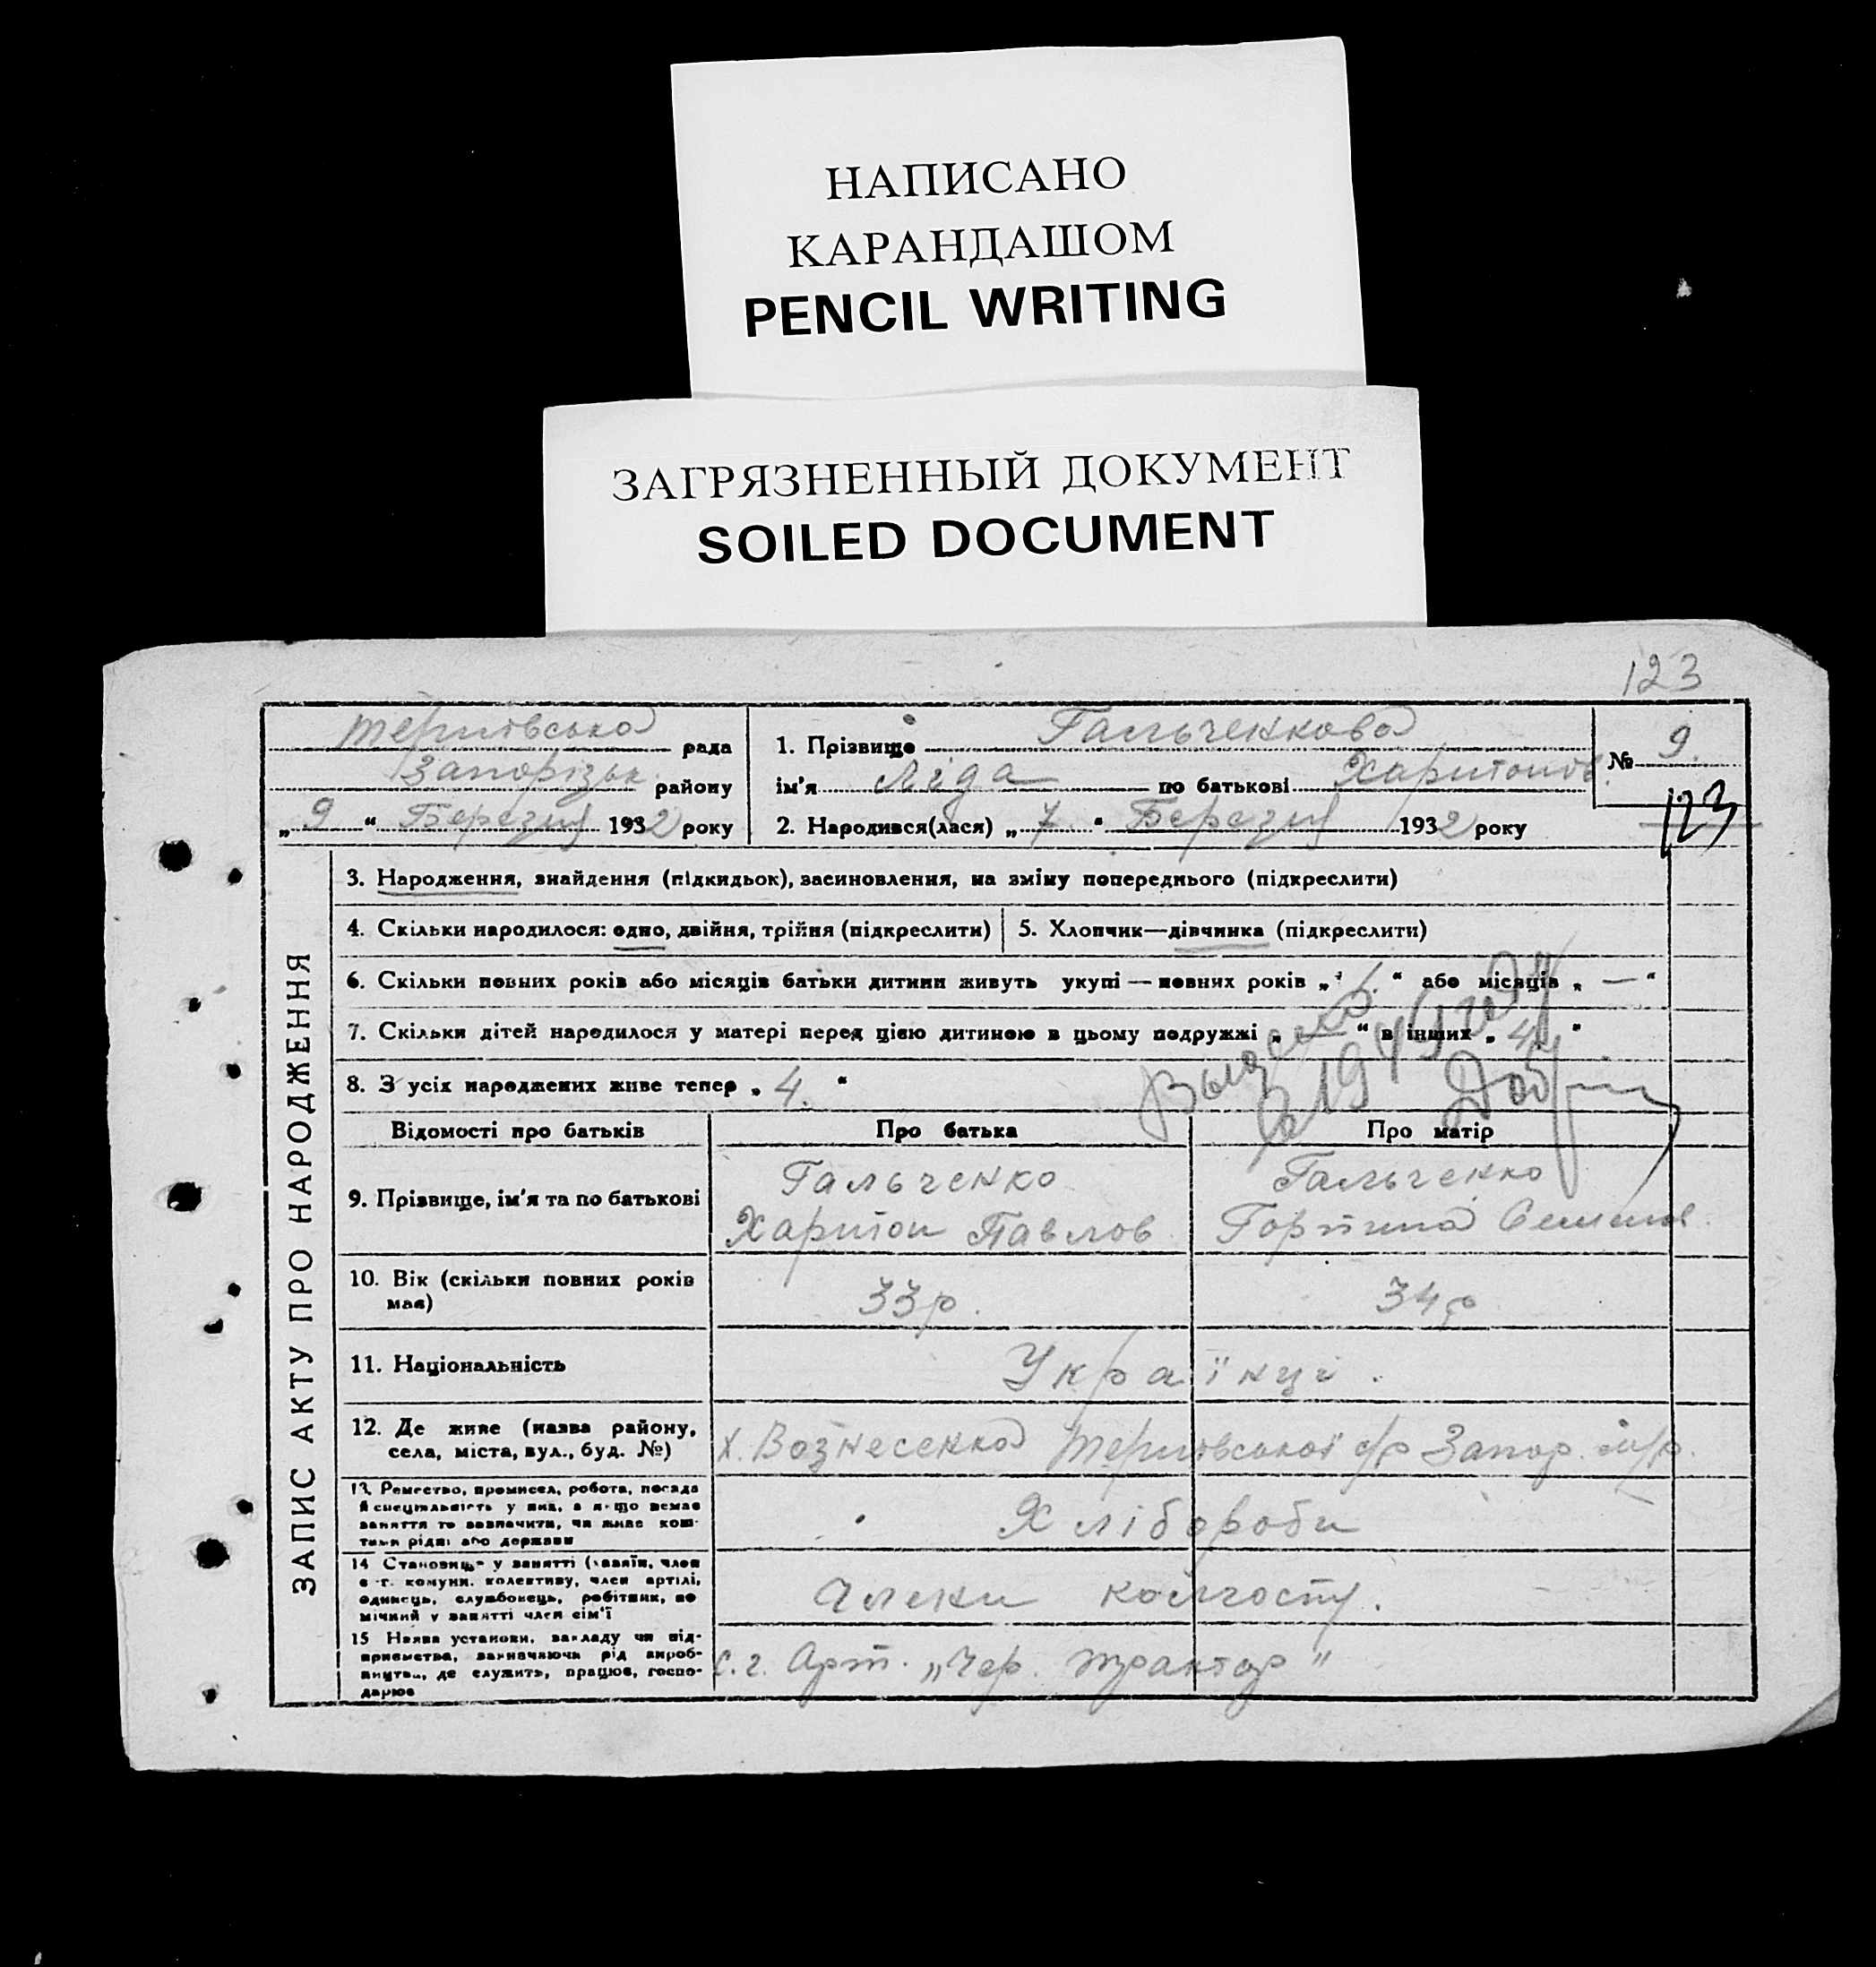 НАПИСАНО
КАРАНДАШОМ
PENCIL WRITING
ЗАГРЯЗНЕННЫЙ ДОКУМЕНТ
SOILED DOCUMENT
123
Тернівська рада
Запорізьк. району
„ 9 “ Березня 1932 року
1. Прізвище Гальченкова
ім'я Ліда по батькові Харитонов.
2. Народився(лася) „ 7 “ Березня 1932 року
№ 9.
123
ЗАПИС АКТУ ПРО НАРОДЖЕННЯ
3. Народження, знайдення (підкидьок), засиновлення, на зміну попереднього (підкреслити)
4. Скільки народилося: одно, двійня, трійня (підкреслити)
5. Хлопчик—дівчинка (підкреслити)
6. Скільки повних років або місяців батьки дитини живуть укупі — повних років „ 1. “ або місяців „ — “
7. Скільки дітей народилося у матері перед цією дитиною в цьому подружжі „ — “ в інших „ 4 “
8. З усіх народжених живе тепер „ 4. “
Відомості про батьків Про батька Про матір
9. Прізвище, ім'я та по батькові
Гальченко
Харитон Павлов
Гальченко
Горпина Семенов.
10. Вік (скільки повних років
має)
33 р. 34 р
11. Національність Українці.
12. Де живе (назва району,
села, міста, вул., буд. №)
х. Вознесенка Тернівської с/р Запор. м/р.
13. Ремество, промисел, робота, посада
й специяльність у них, а якщо немає
заняття то зазначити, чи живе кош-
тами рідні або держави
Хлібороби
14 Становище у занятті (хазяїн, член
с.-г. комуни, колективу, член артілі,
одинець, службовець, робітник, по
мічний у занятті член сім'ї
Члени колгоспу.
15 Назва установи, закладу чи під-
приємства, зазначаючи рід вироб-
ництва, де служить, працює, госпо-
дарює
с. г. Арт. „Чер. трактор"